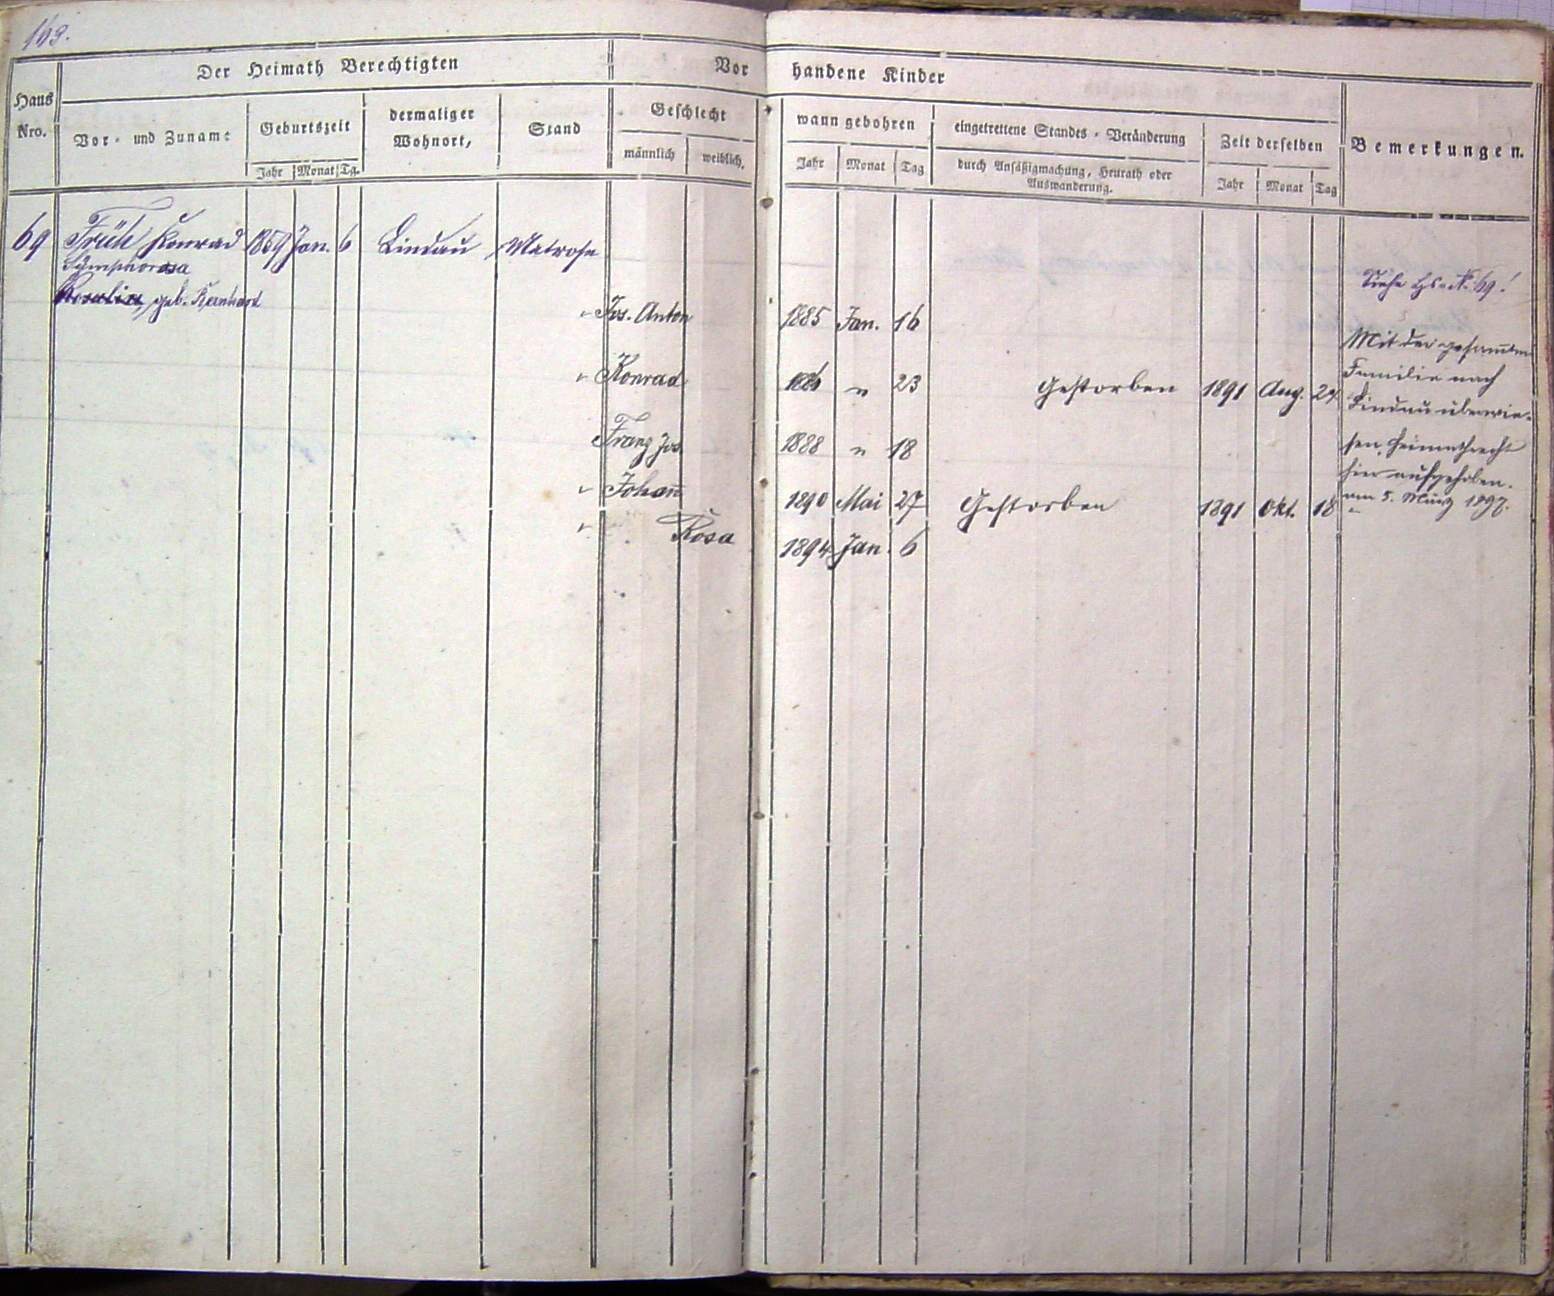 163.
Der Heimath Berechtigten
Vor handene Kinder
Haus Nro.
Vor- und Zuname
Geburtszeit
Jahr Monat Tg.
dermaliger Wohnort,
Stand
Geschlecht
männlich weiblich.
wann gebohren
Jahr Monat Tag
eingetrettene Standes-Veränderung
durch Ansäßigmachung, Heurath oder
Auswanderung.
Zeit derselben
Jahr Monat Tag
Bemerkungen.
69 Früh Konrad 1859 Jan. 6 Lindau Matrose
Symphorosa
geb. Reinhard
Siehe Hs. N. 69!
Jos. Anton 1885 Jan. 16
Konrad 1886 " 23 Gestorben 1891 Aug. 27.
Franz Jos. 1888 " 18
Johann 1890 Mai 27 Gestorben 1891 Okt. 18
Rosa 1894 Jan. 6
Mit der gesammten
Familie nach
Lindau überwie-
sen, Heimathrecht
hier aufgehoben.
am 5. März 1897.